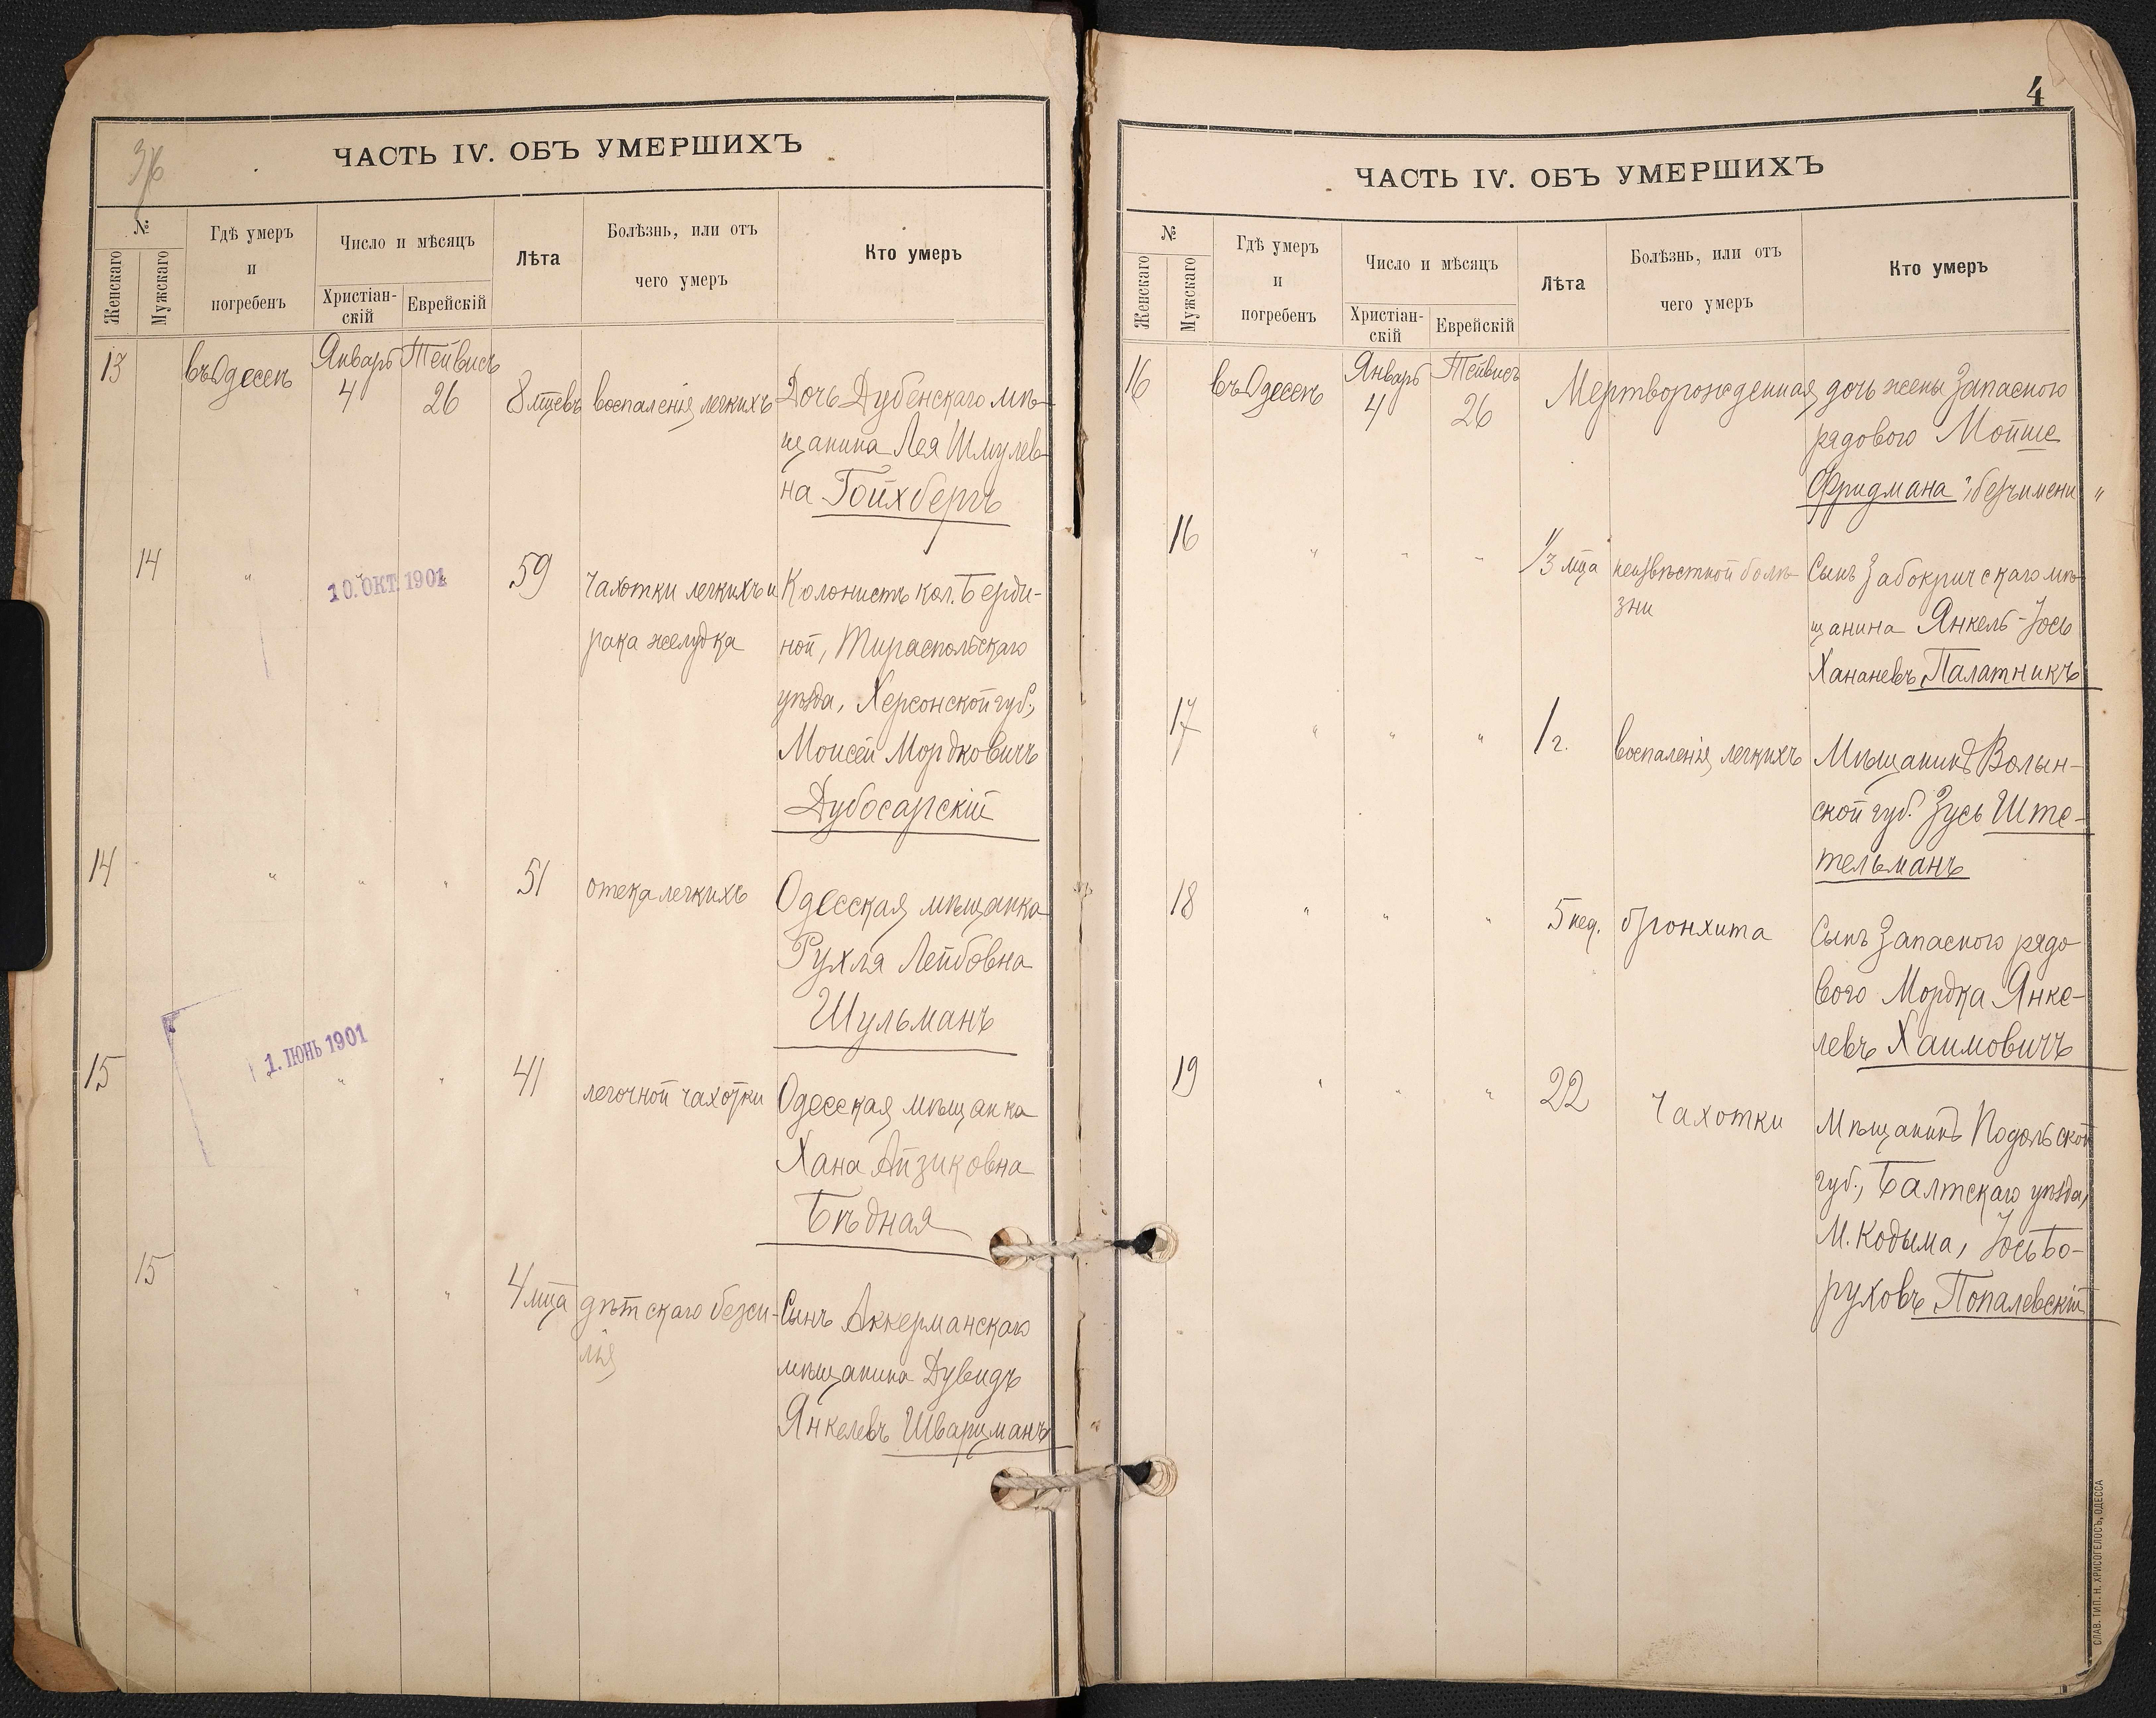 36
ЧАСТЬ IV. ОБЪ УМЕРШИХЪ
№
Женскаго
Мужскаго
Гдѣ умеръ
и
погребенъ
Число и мѣсяцъ
Христіан-
скій
Еврейскій
Лѣта
Болѣзнь, или отъ
чего умеръ
Кто умеръ
13 въ Одессѣ Январь 4 Тейвисъ 26 8 мцевъ воспаленія легкихъ Дочь Дубенскаго мѣ-
щанина Лея Шмулев-
на Гойхбергъ
14 " " " 59 чахотки легкихъ и Колонистъ кол. Берди-
10. ОКТ. 1901
рака желудка ной, Тираспольскаго
уѣзда, Херсонской губ.,
Моисей Мордковичъ
Дубосарскій
14 " " " 51 отека легкихъ Одесская мѣщанка
Рухля Лейбовна
Шульманъ
1. ІЮНЬ 1901
15 " " 41 легочной чахотки Одесская мѣщанка
Хана Айзиковна
Бѣдная
15 " " " 4 мца дѣтскаго безси- Сынъ Аккерманскаго
лія мѣщанина Дувидъ
Янкелевъ Шварцманъ
4
ЧАСТЬ IV. ОБЪ УМЕРШИХЪ
№
Женскаго
Мужскаго
Гдѣ умеръ
и
погребенъ
Число и мѣсяцъ
Христіан-
скій
Еврейскій
Лѣта
Болѣзнь, или отъ
чего умеръ
Кто умеръ
16 въ Одессѣ Январь 4 Тейвисъ 26 Мертворожденная дочь жены запаснаго
рядового Мойше
Фридмана "безъимени"
16 " " " 1/3 мца неизвѣстной болѣ- Сынъ Забокричскаго мѣ-
зни щанина Янкель-Іось
Хананевъ Палатникъ
17 " " " 1 г. воспаленія легкихъ Мѣщанинъ Волын-
ской губ. ЗусьШте-
тельманъ
18 " " " 5 нед. бронхита Сынъ запасного рядо
вого Мордка Янке-
левъ Хаимовичъ
19 " " " 22 Чахотки Мѣщанинъ Подольской
губ., Балтскаго уѣзда,
М. Кодыма, Іось Бо-
руховъ Попалевскій
СЛАВ. ТИП. Н. ХРИСОГЕЛОСЪ, ОДЕССА